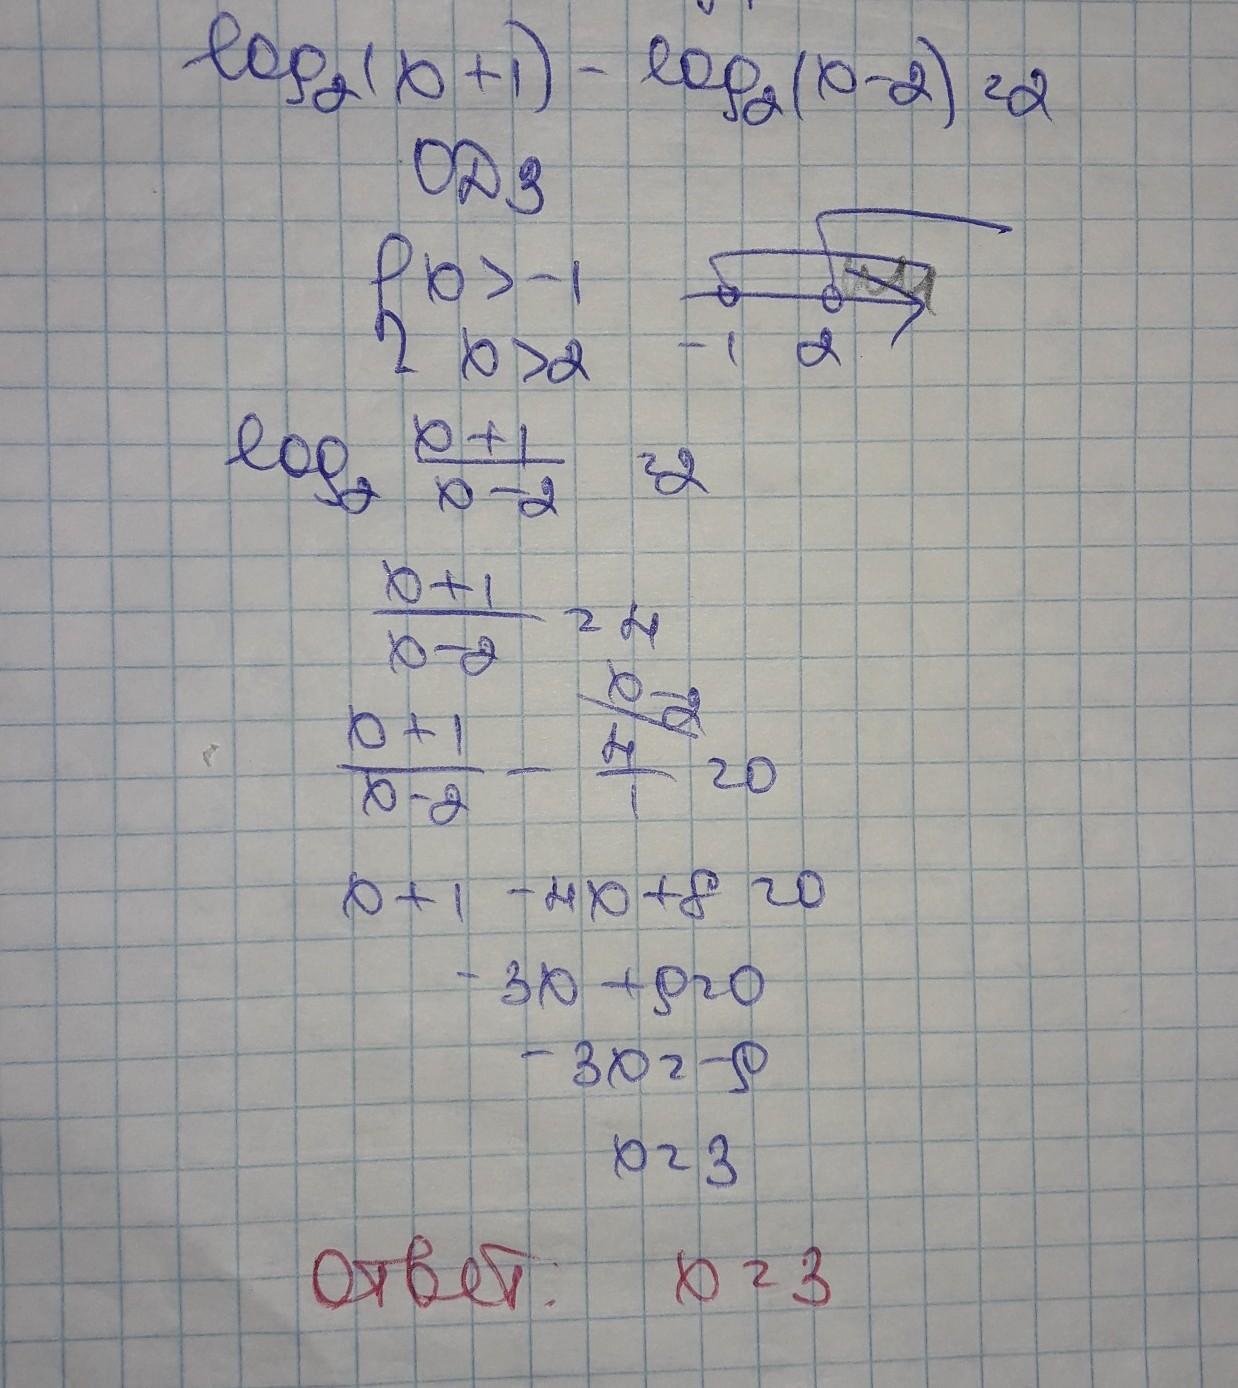 log₂(x+1) - log₂(x-2) = 2
ОДЗ
{ x > -1
x > 2
-1 2
log₂ (x+1)/(x-2) = 2
(x+1)/(x-2) = 4
(x+1)/(x-2) - 4/1 /x-2 = 0
x+1 -4x+8 = 0
-3x + 9 = 0
-3x = -9
x = 3
Ответ: x = 3